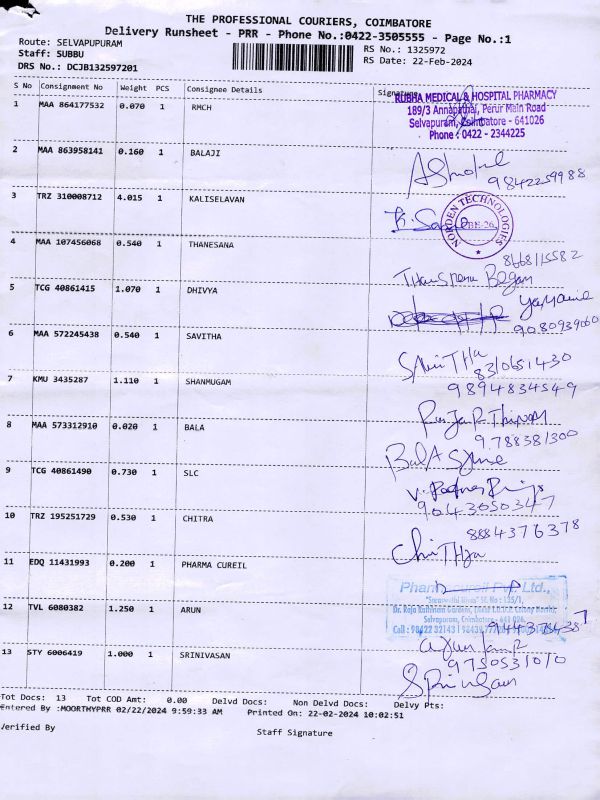 THE PROFESSIONAL COURIERS, COIMBATORE
Delivery Runsheet - PRR - Phone No.:0422-3505555 - Page No.:1
Route: SELVAPUPURAM
RS No.: 1325972
Staff: SUBBU
RS Date: 22-Feb-2024
DRS No.: DCJB132597201
S No Consignment No Weight PCS Consignee Details Signature
1 MAA 864177532 0.070 1 RMCH
RUBHA MEDICAL & HOSPITAL PHARMACY
189/3 Annapathai, Perur Main Road
Selvapuram, Coimbatore - 641026
Phone : 0422 - 2344225
2 MAA 863958141 0.160 1 BALAJI
9842259988
3 TRZ 310008712 4.015 1 KALISELAVAN
NORDEN TECHNOLOGIES
CBE-26
4 MAA 107456068 0.540 1 THANESANA
8668115582
Begam
5 TCG 40861415 1.070 1 DHIVYA
9080939060
6 MAA 572245438 0.540 1 SAVITHA
SAviTHa
8310651430
7 KMU 3435287 1.110 1 SHANMUGAM
9894834549
8 MAA 573312910 0.020 1 BALA
9788381300
BalA
9 TCG 40861490 0.730 1 SLC
9043050347
10 TRZ 195251729 0.530 1 CHITRA
8884376378
11 EDQ 11431993 0.200 1 PHARMA CUREIL
Pvt. Ltd.,
12 TVL 6080382 1.250 1 ARUN
Selvapuram, Coimbatore - 641 026
13 STY 6006419 1.000 1 SRINIVASAN
9750531010
Tot Docs: 13 Tot COD Amt: 0.00 Delvd Docs: Non Delvd Docs: Delvy Pts:
Entered By :MOORTHYPRR 02/22/2024 9:59:33 AM Printed On: 22-02-2024 10:02:51
Verified By
Staff Signature